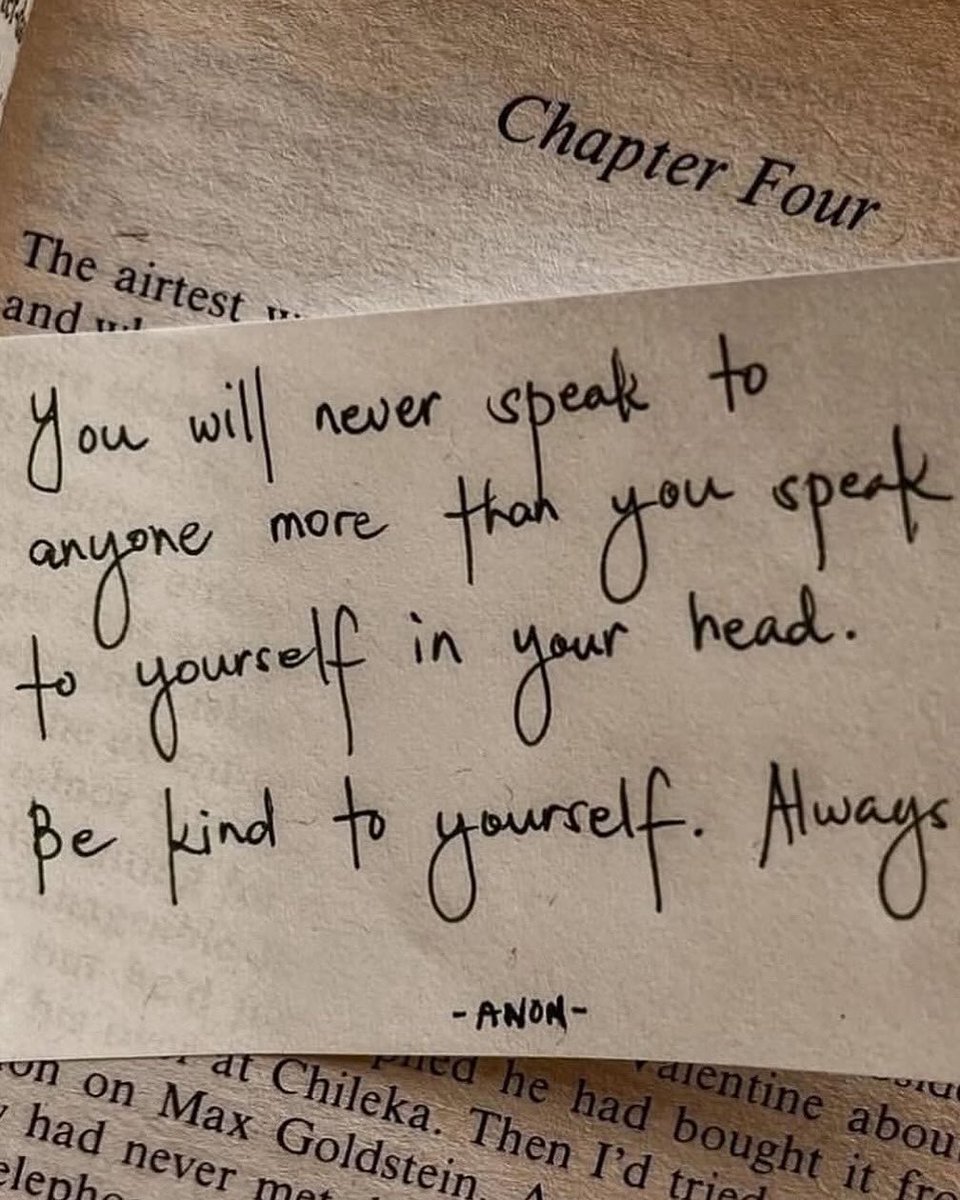 Chapter Four
The airtest
and
You will never speak to
anyone more than you speak
to yourself in your head.
Be kind to yourself. Always
-ANON-
at Chileka. Then I'd tried
he had bought it
Valentine
on Max Goldstein.
had never met